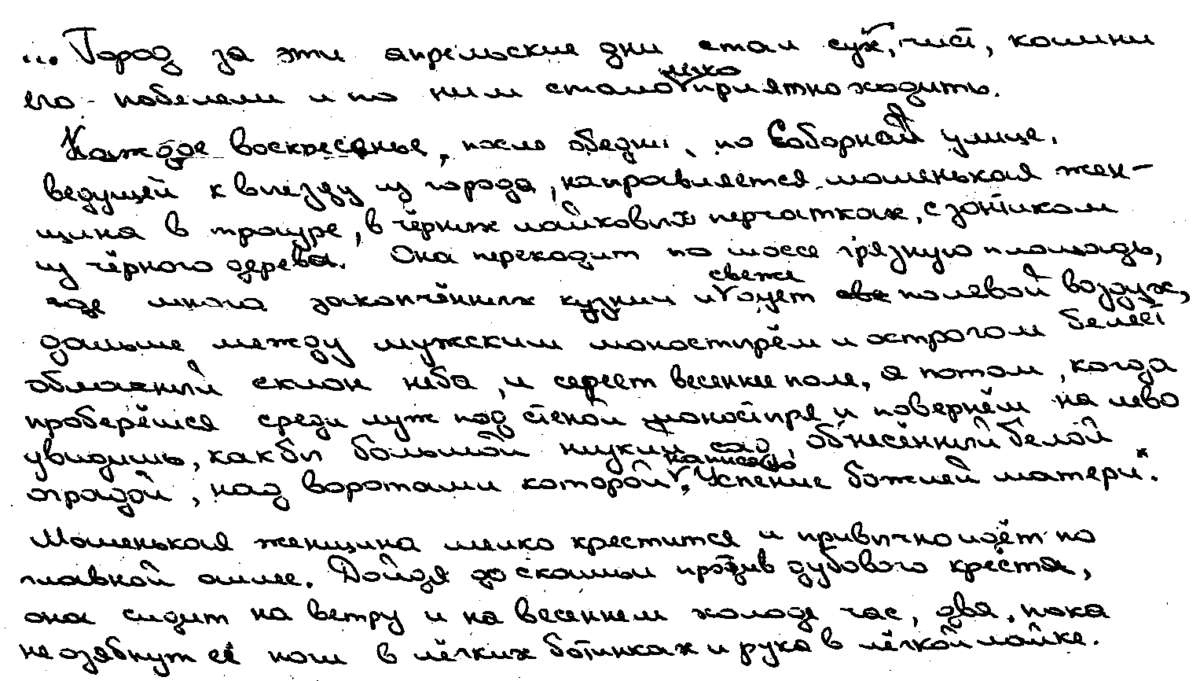 ... Город за эти апрельские дни стал сух, чист, камни
его побелели и по ним стало легко приятно ходить.
Каждое воскресенье, после обедни, по Соборной улице,
ведущей к выезду из города, направляется маленькая жен-
щина в трауре, в чёрных лайковых перчатках, с зонтиком
из чёрного дерева. Она переходит по шоссе грязную площадь,
где много закопчённых кузниц и свежо дует полевой воздух,
дальше между мужским монастырём и острогом белеет
облачный склон неба, и сереет весеннее поле, а потом, когда
проберёшься среди луж под стеной монастыря и повернём на лево
увидишь, как бы большой низкий сад, обнесённый белой
оградой, над воротами которой написано „Успение божией матери".
Маленькая женщина мелко крестится и привычно идёт по
главной аллее. Дойдя до скамьи против дубового креста,
она сидит на ветру и на весеннем холоде час, два, пока
не озябнут её ноги в лёгких ботинках и рука в лёгкой лайке.